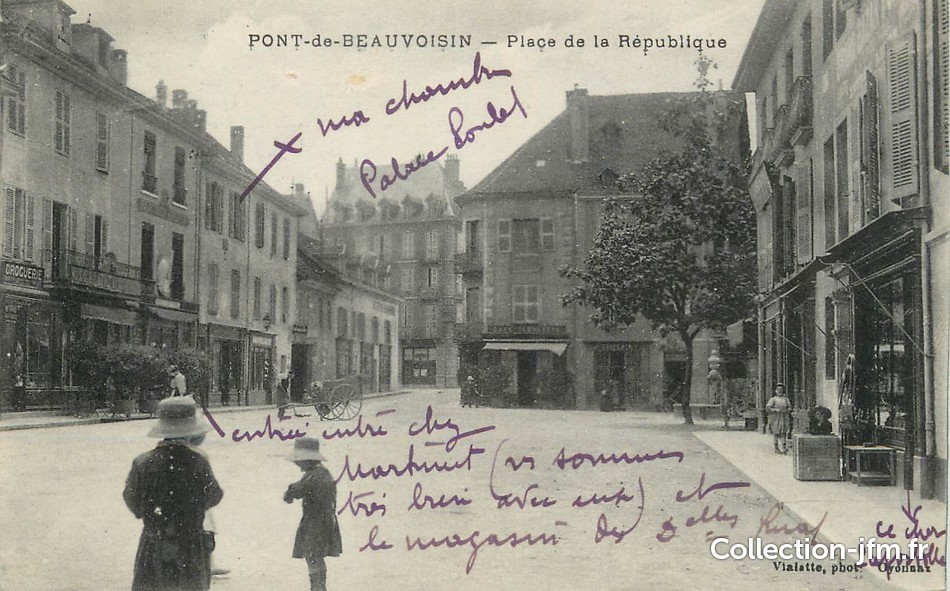 PONT-de-BEAUVOISIN — Place de la République
x ma chambre
Palace Poulet
DROGUERIE
entrée entre chez
Martinet (ns sommes
très bien avec eux) et
le magasin des Delles
ce cher
Vialatte, phot. Oyonnax
Collection-jfm.fr